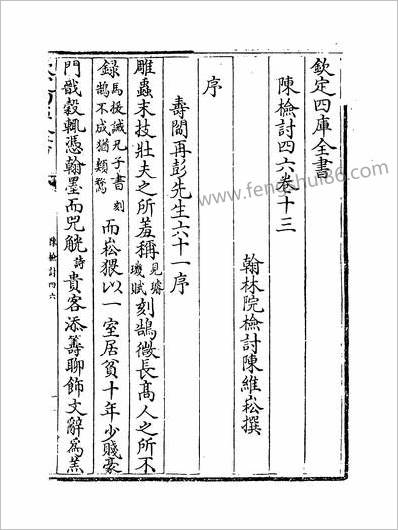 欽定四庫全書
陳檢討四六卷十三
翰林院檢討陳維崧撰
序
壽閻再彭先生六十一序
雕蟲末技壯夫之所羞稱見璩璣賦刻鵠微長高人之所不
録馬援誡兄子書刻鵠不成猶類鶩而崧猥以一室居貧十年少賤豪
門戟轂輒憑翰墨而兕觥詩貴客添籌聊飾文辭為羔
陳檢討四六
www.fengshui86.com